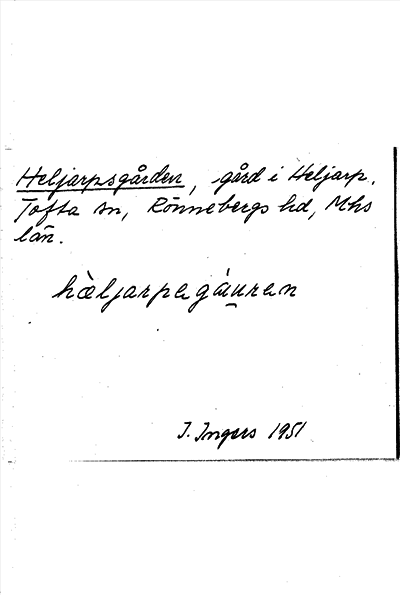 Heljarpsgården, gård i Heljarp,
Tofta sn, Rönnebergs hd, Mhs
län.
hæljarpagáu̱ren
I. Ingers 1951